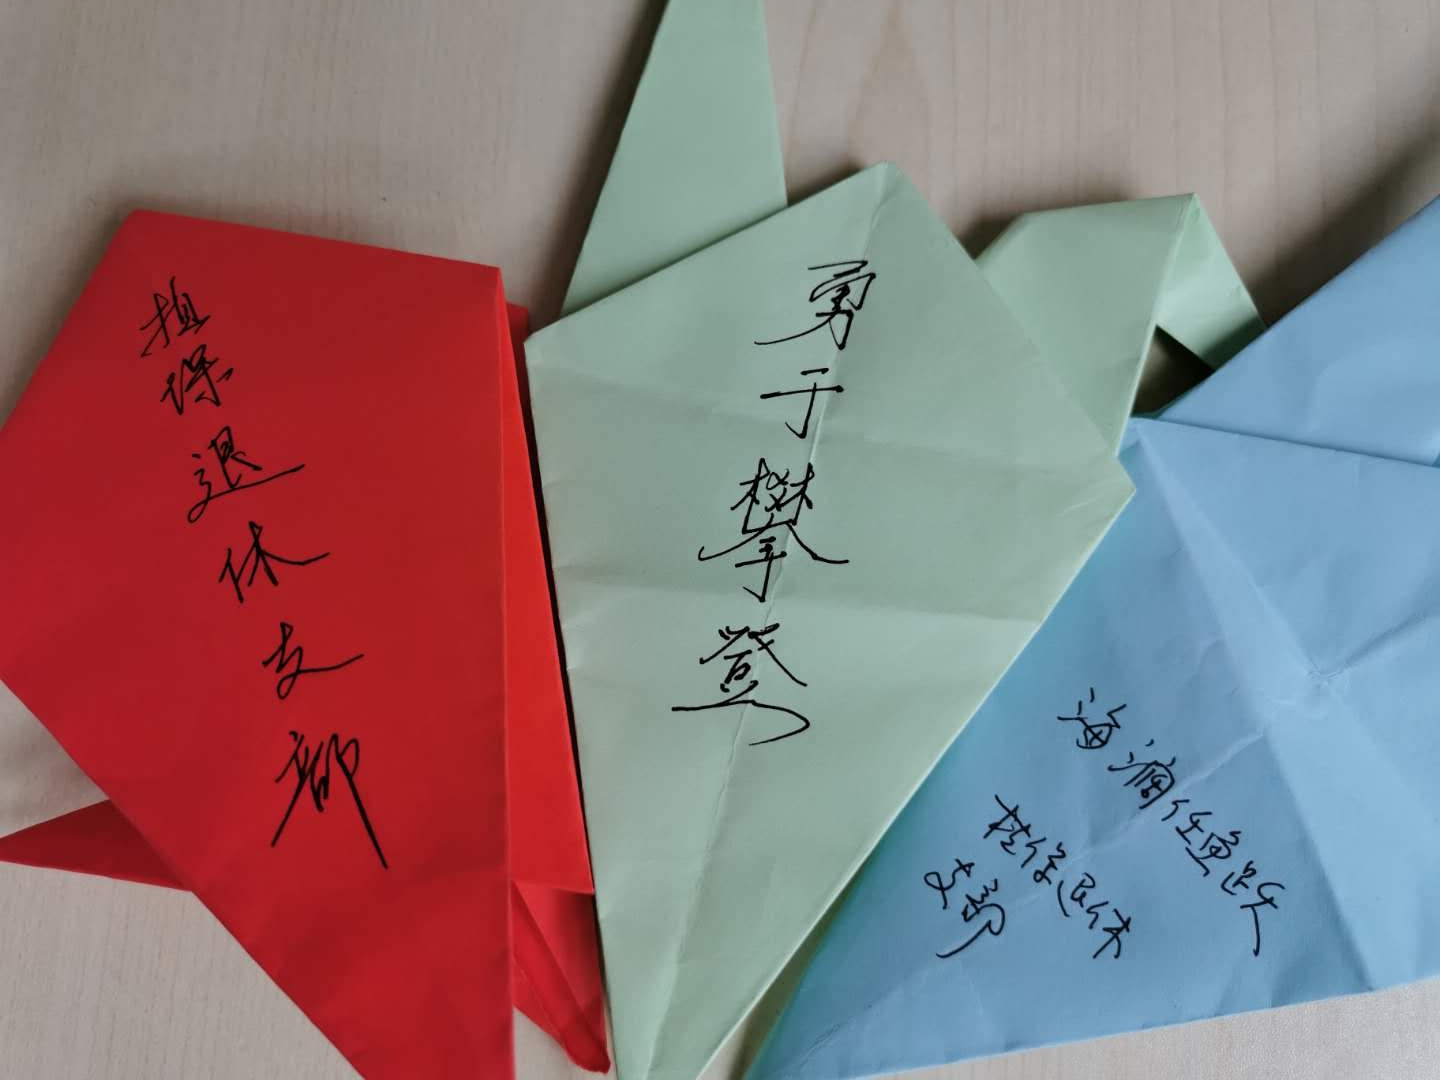 担保退休支部
勇于攀登
海阔任鱼跃
担保退休
支部